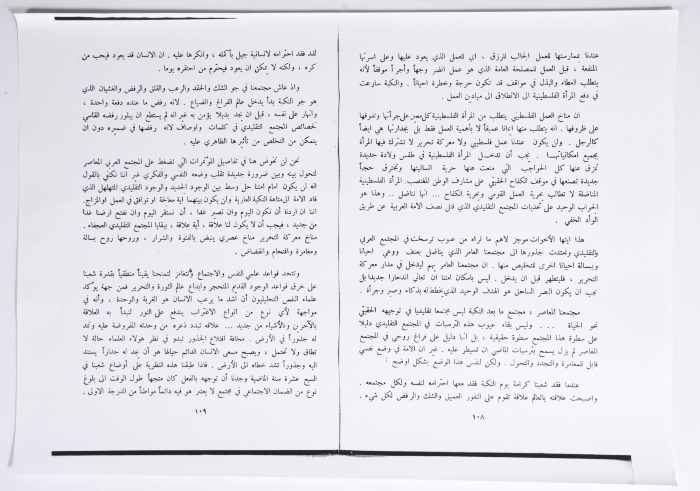 عندنا بممارستها للعمل الجالب للرزق ، اي للعمل الذي يعود عليها وعلى اسرتها
المنفعة ، قبل العمل للمصلحة العامة الذي هو عمل النصر وجهاً وأجراً موقفاً لأنه
يتطلب العطاء والبذل في مواقف قد تكون حرجة وخطرة احياناً . والنكبة سارعت
في دفع المرأة الفلسطينية الى الانطلاق الى ميادين العمل .
ان مناخ العمل الفلسطيني يتطلب من المرأة الفلسطينية كل معين على جرأتها وتفوقها
على ظروفها . انه يتطلب منها ايماناً عميقاً لا بأهمية العمل فقط بل بجدارتها هي ايضاً
كالرجل . ولن يكون عندنا عمل فلسطيني ولا معركة تحرير لا تشترك فيها المرأة
بجميع امكانياتها . يجب أن تدخل المرأة الفلسطينية في طقس ولادة جديدة
تمزق عنها كل الحواجب التي منعت عنها حرية انسانيتها وتخترق حجباً
جديدة تصنعها في موقف الكفاح الحقيقي على مشارف الوطن المغتصب. المرأة الفلسطينية
المناضلة لا تطالب بحرية العمل القومي وبحرية الكفاح ... انها تناضل .. وهذا هو
الجواب الوحيد على تحديات المجتمع التقليدي الذي قتل نصف الامة العربية عن طريق
الوأد الخفي .
هذا ايتها الأخوات موجز لاهم ما نراه من عيوب ترسخت في المجتمع العربي
والتقليدي وتمتد جذورها الى مجتمعنا المعاصر الذي يتناضل بعنف ووعي احياناً
وببسالة احياناً اخرى للتخليص منها . ان مجتمعنا المعاصر يهم ليدخل في مدار معركة
التحرير ، فليتطهر قبل ان يدخل . ليس بامكان امتنا أن تعاني اندحاراً جديداً بل
يجب ان يكون النصر الساحق هو الهدف الوحيد الذي يخطط له بذكاء وصبر وجرأة .
مجتمعنا المعاصر ، مجتمع ما بعد النكبة ليس مجتمعاً تقليدياً في توجيهه الحقيقي
نحو الحياة ... وليس بقاء عيوب هذه التربات في المجتمع التقليدي دليلا
على سطوة هذا المجتمع سطوة حقيقية ، بل انها دليل على فراغ روحي في المجتمع
المعاصر لم يزل يسمح بترسبات الماضي ان تسيطر عليه . غير ان الامة في وضع نفسي
قابل للمغامرة والتجدد والتحول . ولكن لنفسر هذا الوضع بشكل اوضح :
عندما فقد شعبنا كرامة يوم النكبة فقد معها احترامه لنفسه ولكل مجتمعه .
واصبحت علاقته بالعالم علاقة تقوم على النفور العميق والشك والرفض لكل شيء .
١٠٨
لقد فقد احترامه لانسانية جيل بأكمله ، وانكرها عليه . ان الانسان قد يعود فيحب من
كره ، ولكنه لا يمكن ان يعود فيحترم من احتقره يوما .
واذ عاش مجتمعنا في جو الشك والحقد والرعب والقلق والرفض والغثيان الذي
هو جو النكبة بدأ يدخل عالم الفراغ والضياع . لانه رفض ما عنده دفعة واحدة ،
وانهار على نفسه ، قبل ان يجد بديلا يؤمن به غير انه لم يستطع ان يبلور رفضه القاسي
لخصائص المجتمع التقليدي في كلمات واوصاف لانه رفضها في ضميره دون ان
يتمكن من التخلص من تأثيرها الظاهري عليه .
نحن لن نخوض هنا في تفاصيل المؤثرات التي تضغط على المجتمع العربي المعاصر
لتحول بينه وبين ضرورة جديدة تقلب وضعه النفسي والفكري غير أننا نكتفي بالقول
انه لن يكون امام امتنا حل وسط بين الوجود الجديد والوجود التقليدي المتهلهل الذي
قاد الامة الى متاهة النكبة العارية ولن يكون بينهما اية مصالحة او توافق في العمل والمزاج.
اننا ان اردنا أن نكون اليوم وان نصير غدا ، أن نستقر اليوم وان نفتح ارضنا غدا
من جديد ، فيجب أن لا يكون لنا علاقة ، أية علاقة ، ببقايا المجتمع التقليدي العجفاء .
مناخ معركة التحرير مناخ عصري ينبض بالفتوة والشرار ، وروحها روح بسالة
ومغامرة واقتحام وانقضاض .
وتتحد قواعد علمي النفس والاجتماع وتتضافر لتمنحنا يقيناً منطقياً بقدرة شعبنا
على خرق قواعد الوجود القديم المتحجر وابداع عالم الثورة والتحرير فمن جهة يؤكد
علماء النفس التحليليون أن اشد ما يرعب الانسان هو الغربة والوحدة ، وأنه في
مواجهة لأي نوع من انواع الاغتراب يندفع على الفور لتبدأ به العلاقة
بالآخرين وبالأشياء من جديد ... علاقة تبدد ذعره من وحدته المفروضة وتمد
له جذوراً في الأرض . مخافة اقتلاع الجذور تبدو في نظر هؤلاء العلماء حالة لا
تطاق ولا تحتمل ، ويصبح مسعى الانسان الدائم حيالها هو أن يجد له جداراً يستند
اليه وجذوراً تشد خطاه الى الأرض . فاذا طبقنا هذه النظرية على أوضاع شعبنا في
السبع عشرة سنة الماضية وجدنا أن توجهه بالفعل كان متجهاً طول الوقت الى بلوغ
نوع من الضمان الاجتماعي في مجتمع لا يعتبر هو فيه دائماً مواطناً من الدرجة الاولى .
١٠٩